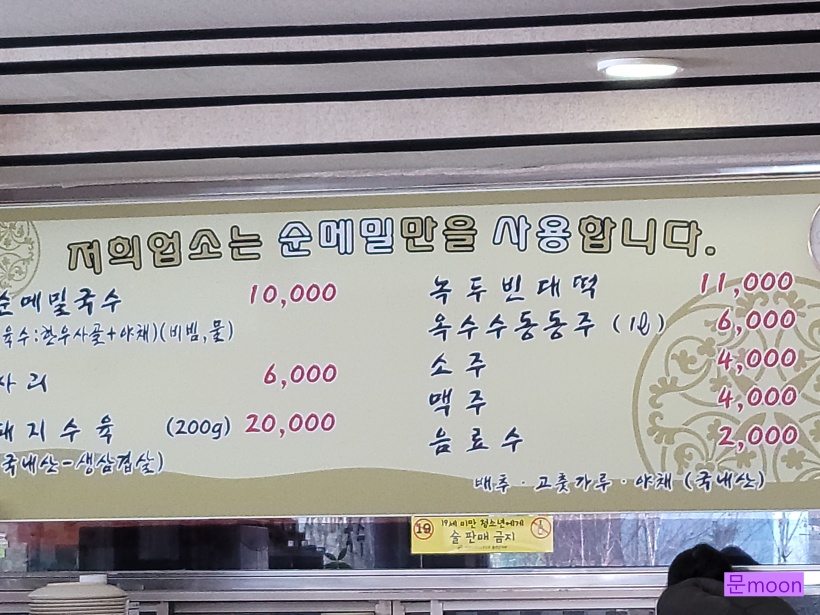 저희업소는 순메밀만을 사용합니다.
순메밀국수 10,000
육수:한우사골+야채)(비빔,물)
사리 6,000
돼지수육 (200g) 20,000
국내산-생삼겹살)
녹두빈대떡 11,000
옥수수동동주 (1ℓ) 6,000
소주 4,000
맥주 4,000
음료수 2,000
배추·고춧가루·야채 (국내산)
19 19세 미만 청소년에게
술 판매 금지
문moon